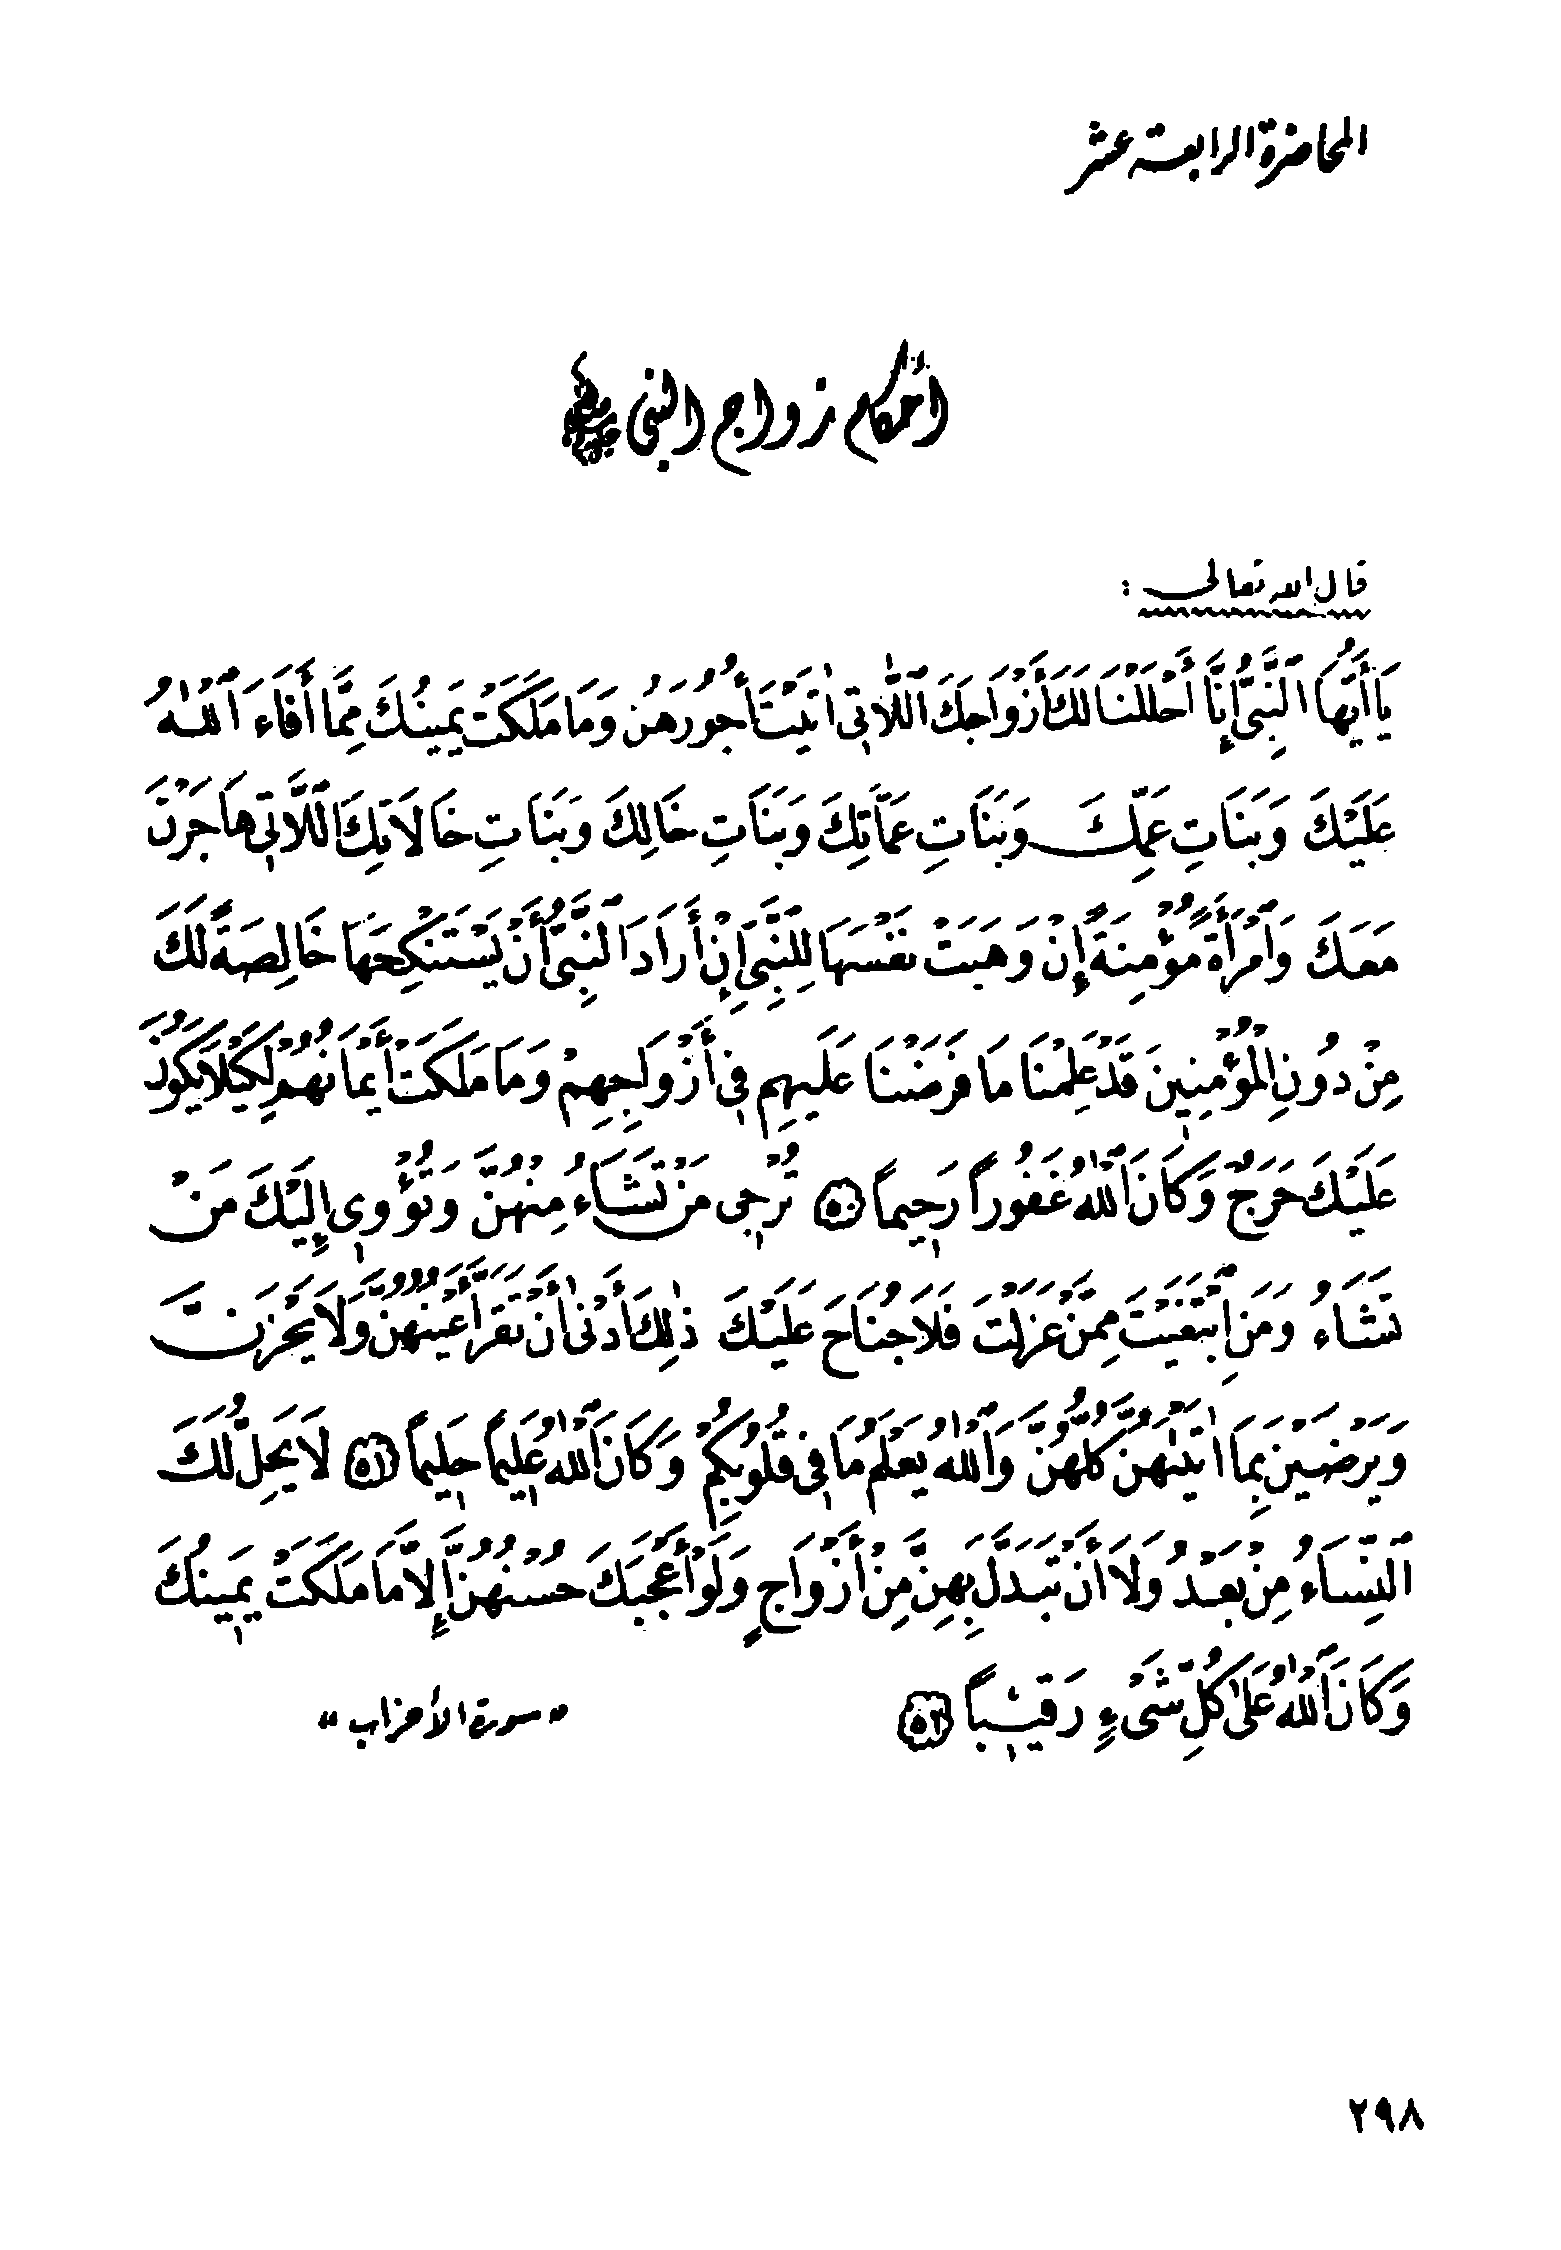 المحاضرة الرابعة عشر
أحكام زواج النبي ﷺ
قال الله تعالى :
يَا أَيُّهَا النَّبِيُّ إِنَّا أَحْلَلْنَا لَكَ أَزْوَاجَكَ اللَّاتِي اٰتَيْتَ أُجُورَهُنَّ وَمَا مَلَكَتْ يَمِينُكَ مِمَّا أَفَاءَ اللّٰهُ
عَلَيْكَ وَبَنَاتِ عَمِّكَ وَبَنَاتِ عَمَّاتِكَ وَبَنَاتِ خَالِكَ وَبَنَاتِ خَالَاتِكَ اللَّاتِي هَاجَرْنَ
مَعَكَ وَامْرَأَةً مُؤْمِنَةً إِنْ وَهَبَتْ نَفْسَهَا لِلنَّبِيِّ إِنْ أَرَادَ النَّبِيُّ أَنْ يَسْتَنْكِحَهَا خَالِصَةً لَكَ
مِنْ دُونِ الْمُؤْمِنِينَ قَدْ عَلِمْنَا مَا فَرَضْنَا عَلَيْهِمْ فِي أَزْوَاجِهِمْ وَمَا مَلَكَتْ أَيْمَانُهُمْ لِكَيْلَا يَكُونَ
عَلَيْكَ حَرَجٌ وَكَانَ اللّٰهُ غَفُورًا رَحِيمًا ﴿٥٠﴾ تُرْجِي مَنْ تَشَاءُ مِنْهُنَّ وَتُؤْوِي إِلَيْكَ مَنْ
تَشَاءُ وَمَنِ ابْتَغَيْتَ مِمَّنْ عَزَلْتَ فَلَا جُنَاحَ عَلَيْكَ ذٰلِكَ أَدْنٰى أَنْ تَقَرَّ أَعْيُنُهُنَّ وَلَا يَحْزَنَّ
وَيَرْضَيْنَ بِمَا اٰتَيْتَهُنَّ كُلُّهُنَّ وَاللّٰهُ يَعْلَمُ مَا فِي قُلُوبِكُمْ وَكَانَ اللّٰهُ عَلِيمًا حَلِيمًا ﴿٥١﴾ لَا يَحِلُّ لَكَ
النِّسَاءُ مِنْ بَعْدُ وَلَا أَنْ تَبَدَّلَ بِهِنَّ مِنْ أَزْوَاجٍ وَلَوْ أَعْجَبَكَ حُسْنُهُنَّ إِلَّا مَا مَلَكَتْ يَمِينُكَ
وَكَانَ اللّٰهُ عَلٰى كُلِّ شَيْءٍ رَقِيبًا ﴿٥٢﴾ «سورة الأحزاب»
٢٩٨